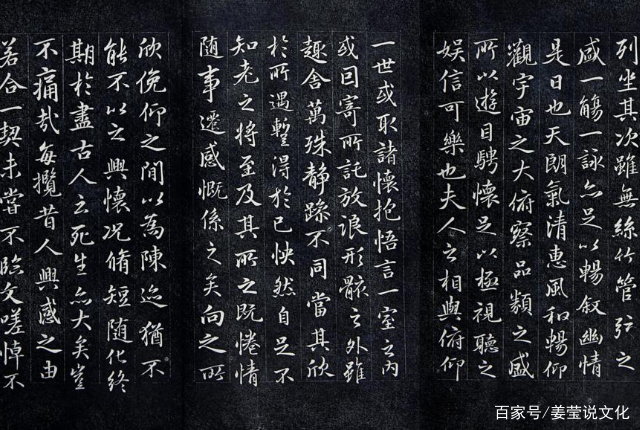 列坐其次雖無絲竹管弦之
盛一觴一詠亦足以暢叙幽情
是日也天朗氣清惠風和暢仰
觀宇宙之大俯察品類之盛
所以遊目騁懷足以極視聽之
娛信可樂也夫人之相與俯仰
一世或取諸懷抱悟言一室之内
或因寄所託放浪形骸之外雖
趣舍萬殊静躁不同當其欣
於所遇蹔得於己怏然自足不
知老之將至及其所之既惓情
随事遷感慨係之矣向之所
欣俛仰之間以為陳迹猶不
能不以之興懷况脩短随化終
期於盡古人云死生亦大矣豈
不痛哉每攬昔人興感之由
若合一契未嘗不臨文嗟悼不
百家号/姜莹说文化